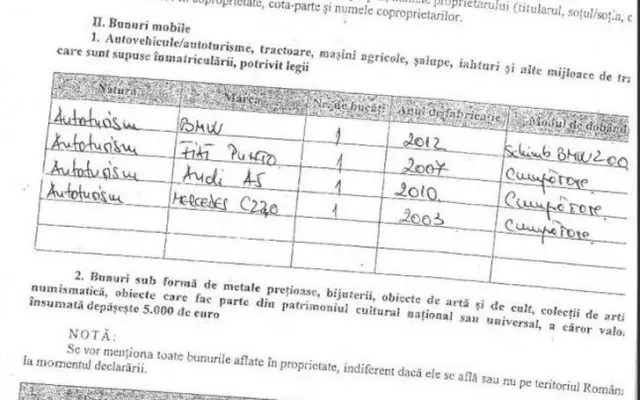 în coproprietate, cota-parte și numele coproprietarilor.
proprietarului (titularul, soțul/soția, c
II. Bunuri mobile
1. Autovehicule/autoturisme, tractoare, mașini agricole, șalupe, iahturi și alte mijloace de tra
care sunt supuse înmatriculării, potrivit legii
Natura Marca Nr. de bucăți Anul de fabricație Modul de dobând
Autoturism BMW 1 2012 Schimb BMW 200
Autoturism FIAT PUNTO 1 2007 Cumpărare.
Autoturism Audi A5 1 2010 Cumpărare.
Autoturism MERCEDES C220 1 2003 Cumpărare.
2. Bunuri sub formă de metale prețioase, bijuterii, obiecte de artă și de cult, colecții de artă
numismatică, obiecte care fac parte din patrimoniul cultural național sau universal, a căror valo.
însumată depășește 5.000 de euro
NOTĂ:
Se vor menționa toate bunurile aflate în proprietate, indiferent dacă ele se află sau nu pe teritoriul Român
la momentul declarării.